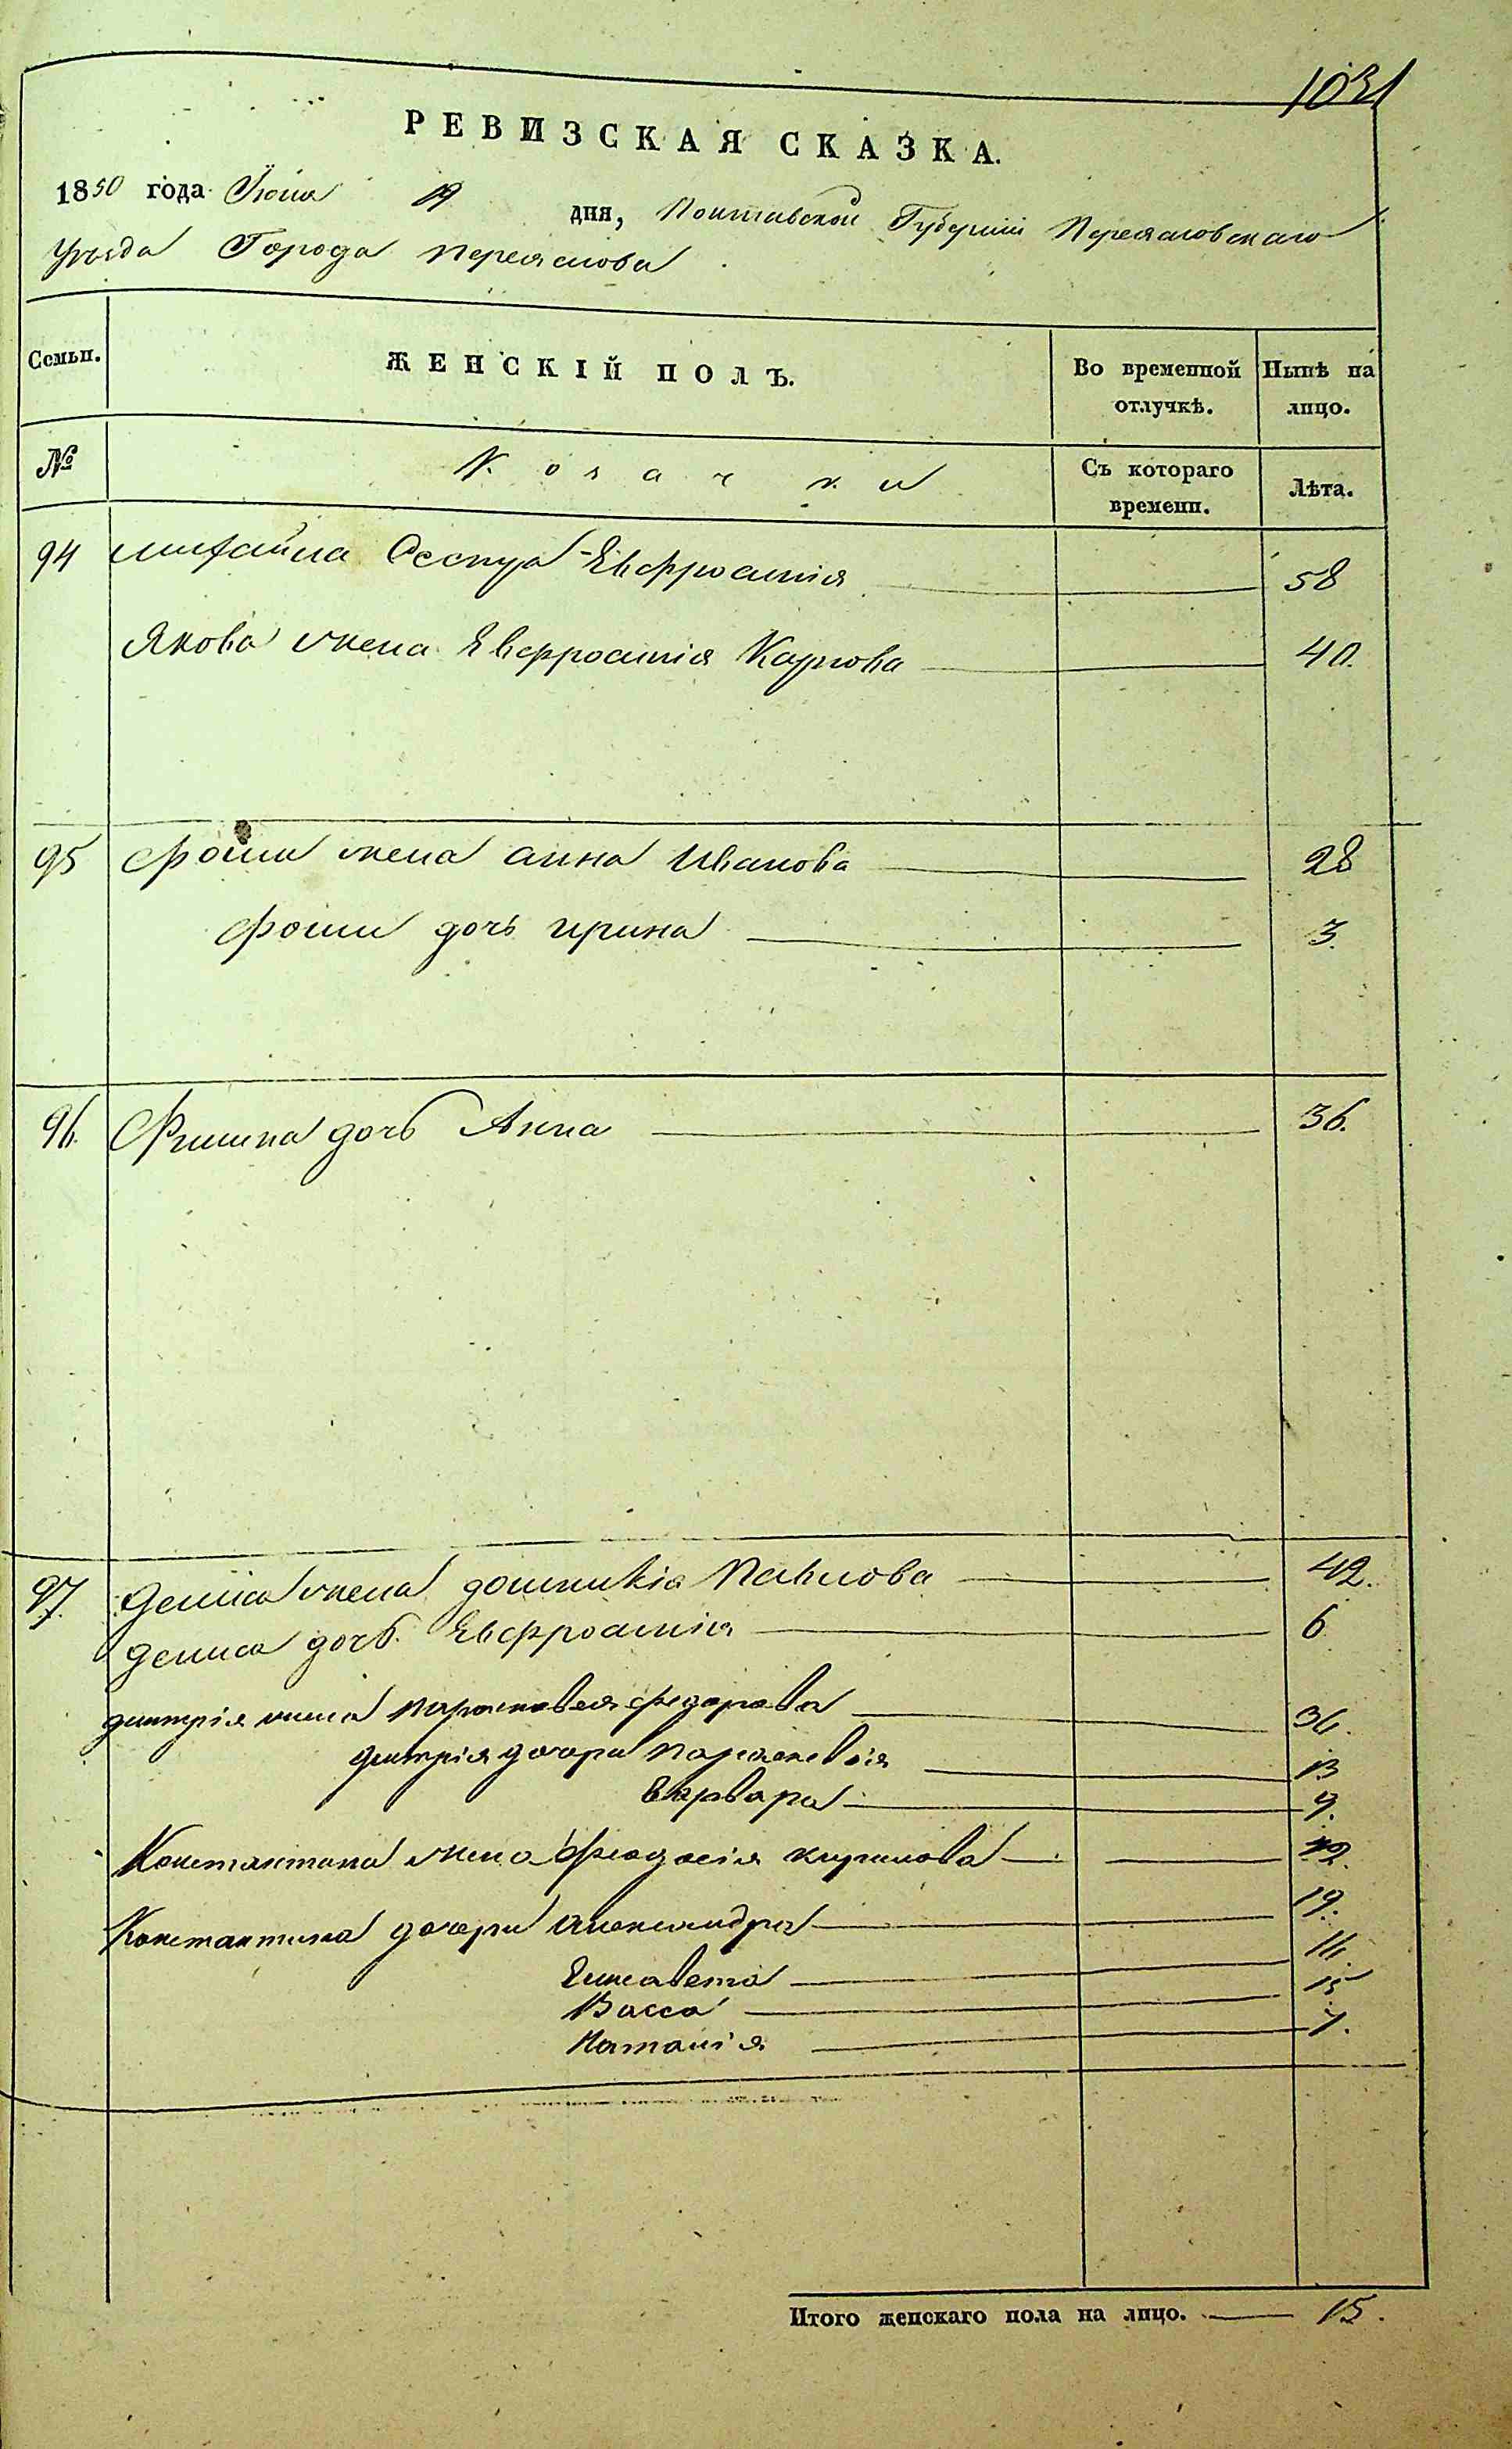 1031
РЕВИЗСКАЯ СКАЗКА.
1850 года Июня 19 дня, Полтавской Губерніи Переясловскаго
Уѣзда Города Переяслова
Семьи.
ЖЕНСКІЙ ПОЛЪ.
Во временной отлучкѣ.
Нынѣ на лицо.
№
Козачки
Съ котораго времени.
Лѣта.
94 Михайла Сестра Евфросинія 58
Якова жена Евфросинія Карпова 40.
95 Фомы жена анна Иванова 28
Фомы дочь ирина 3.
96. Филипа дочь Анна 36.
97. Дениса жена домникія Павлова 42.
Дениса дочь Евфросинія 6
дмитрія жена Парасковея федорова 36.
дмитрія дочери Парасковія 13
Варвара 9.
Константина жена Феодосія кирилова 42.
Константина дочери Александра 19.
Елисавета 16.
Васса 15
Наталія 7.
Итого женскаго пола на лицо. 15.